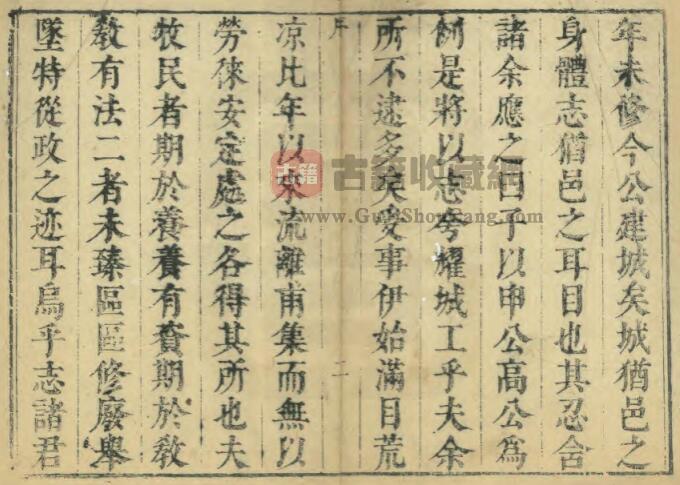 年未修今公建城矣城猶邑之
身體志猶邑之耳目也其忍舍
諸余應之曰子以申公高公為
例是將以志夸耀城工乎夫余
所不逮多矣受事伊始滿目荒
序 二
凉比年以來流離甫集而無以
勞倈安定處之各得其所也夫
牧民者期於養養有資期於教
教有法二者未臻區區修廢舉
墜特從政之迹耳烏乎志諸君
古籍
古籍收藏網
www.GuJiShouCang.com